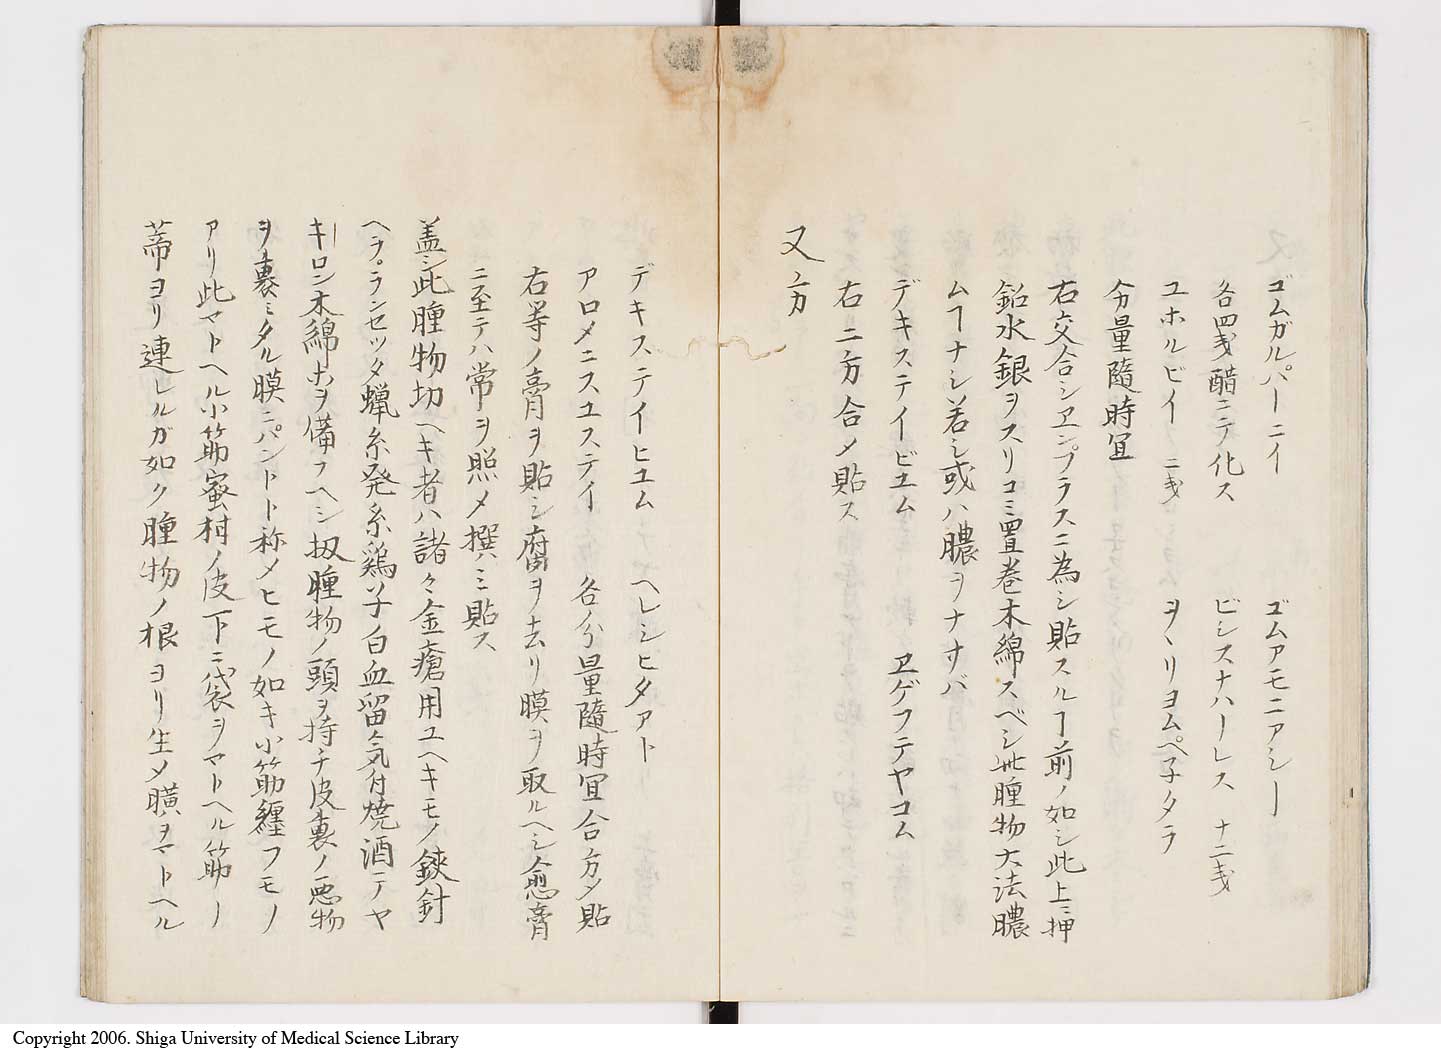 ゴムガルパーニイ　ゴムアモニアシー
各四戔醋ニテ化ス　ビシスナハーレス　十二戔
ユホルビイ　二戔　ヲヽリヨムペ子タラ
分量隨時冝
右交合シヱンプラスニ為シ貼スルヿ前ノ如シ此上ニ押
鉛水銀ヲスリコミ置巻木綿スベシ此腫物大法膿
ムヿナシ若シ或ハ膿ヲナサバ
デキステイビユム　ヱゲフテヤコム
右二方合メ貼ス
又方
デキステイヒユム　ヘレシヒタアト
アロメニスユステイ　各分量隨時冝合方〆貼
右等ノ膏ヲ貼シ腐ヲ去リ膜ヲ取ルヘシ愈膏
ニ至テハ常ヲ照メ撰ハミ貼ス
盖シ此腫物切ヘキ者ハ諸々金瘡用ユヘキモノ鋏針
ヘラ。ランセツタ蝋糸発糸鶏子白血留気付焼酒テヤ
キロン木綿ホヲ備フヘシ扨腫物ノ頭ヲ持チ皮裏ノ悪物
ヲ裏ミタル膜ニパントト称メヒモノ如キ小筋纏フモノ
アリ此マトヘル小筋蜜柑ノ皮下ニ袋ヲマトヘル筋ノ
蒂ヨリ連レルガ如ク腫物ノ根ヨリ生メ膜ヲマトヘル
Copyright 2006. Shiga University of Medical Science Library